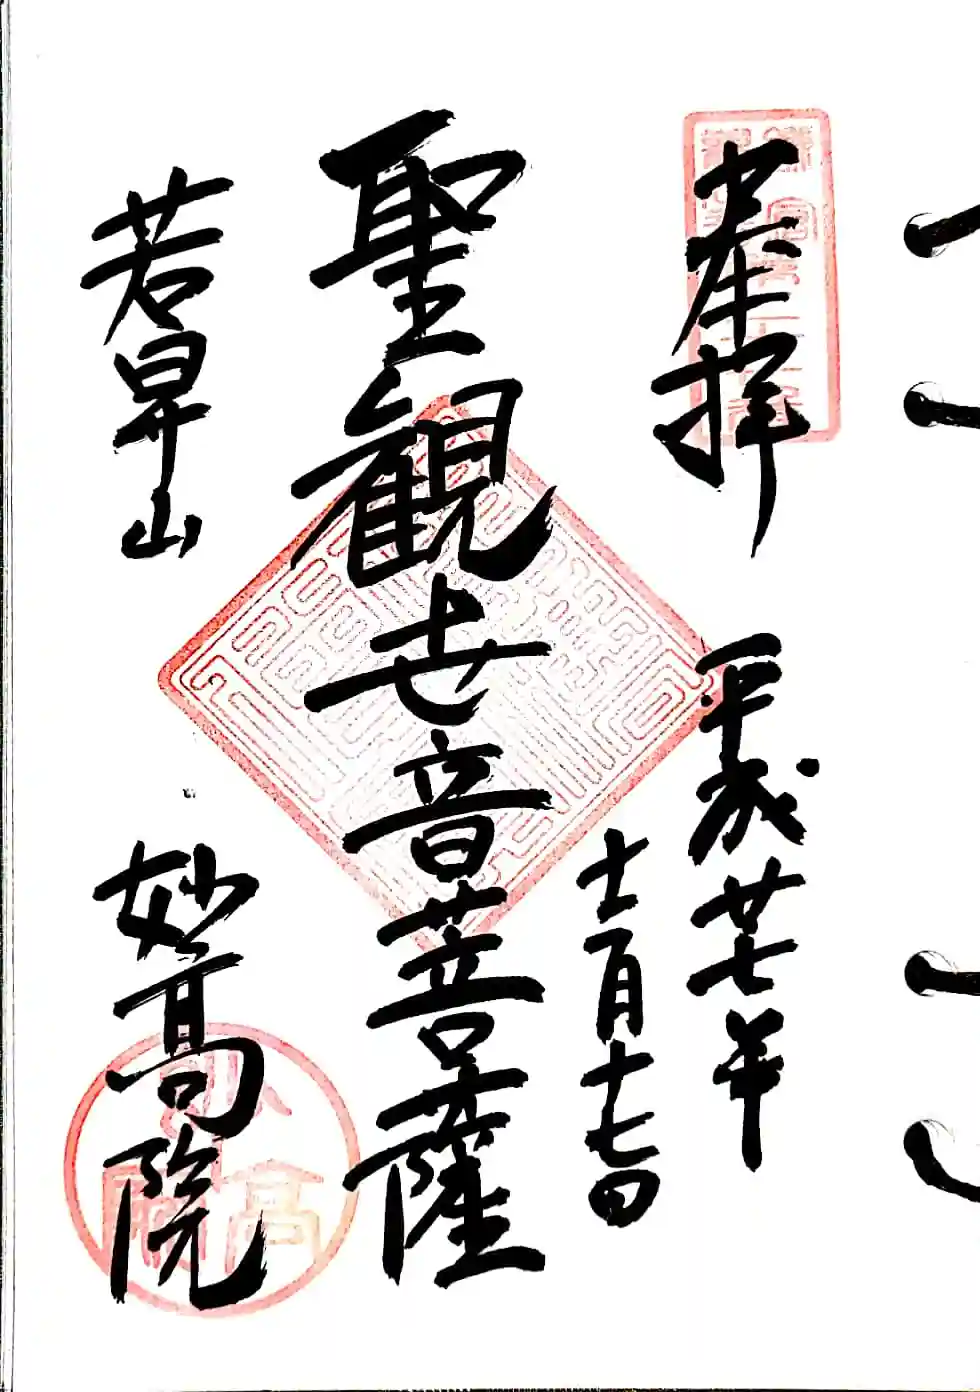 奉拝
平成廿七年
十一月十七日
聖観世音菩薩
若昇山
妙高院